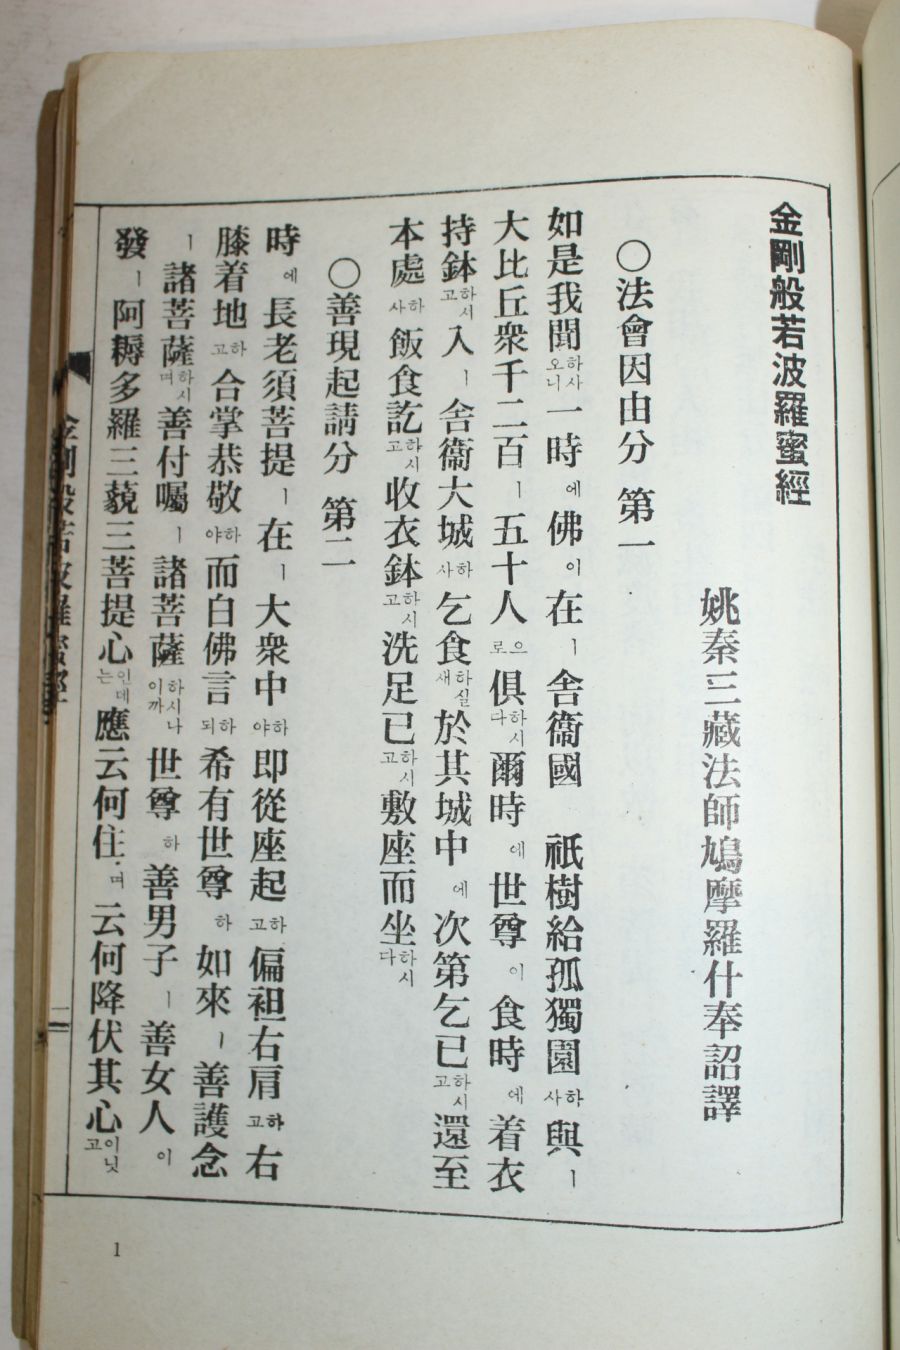 金剛般若波羅蜜經
姚秦三藏法師鳩摩羅什奉詔譯
○法會因由分 第一
如是我聞하사오니一時에佛이在ㅣ舍衞國 祇樹給孤獨園하사與ㅣ
大比丘衆千二百ㅣ五十人으로俱하시다爾時에世尊이食時에着衣
持鉢하시고入ㅣ舍衞大城하사乞食하실새於其城中에次第乞已하시고還至
本處하사飯食訖하시고收衣鉢하시고洗足已하시고敷座而坐하시다
○善現起請分 第二
時에長老須菩提ㅣ在ㅣ大衆中하야即從座起하고偏袒右肩하고右
膝着地하고合掌恭敬하야而白佛言하되希有世尊하如來ㅣ善護念
ㅣ諸菩薩하시며善付囑ㅣ諸菩薩하시나이까世尊하善男子ㅣ善女人이
發ㅣ阿耨多羅三藐三菩提心인데는應云何住며云何降伏其心이닛고
金剛般若波羅蜜經
二
1